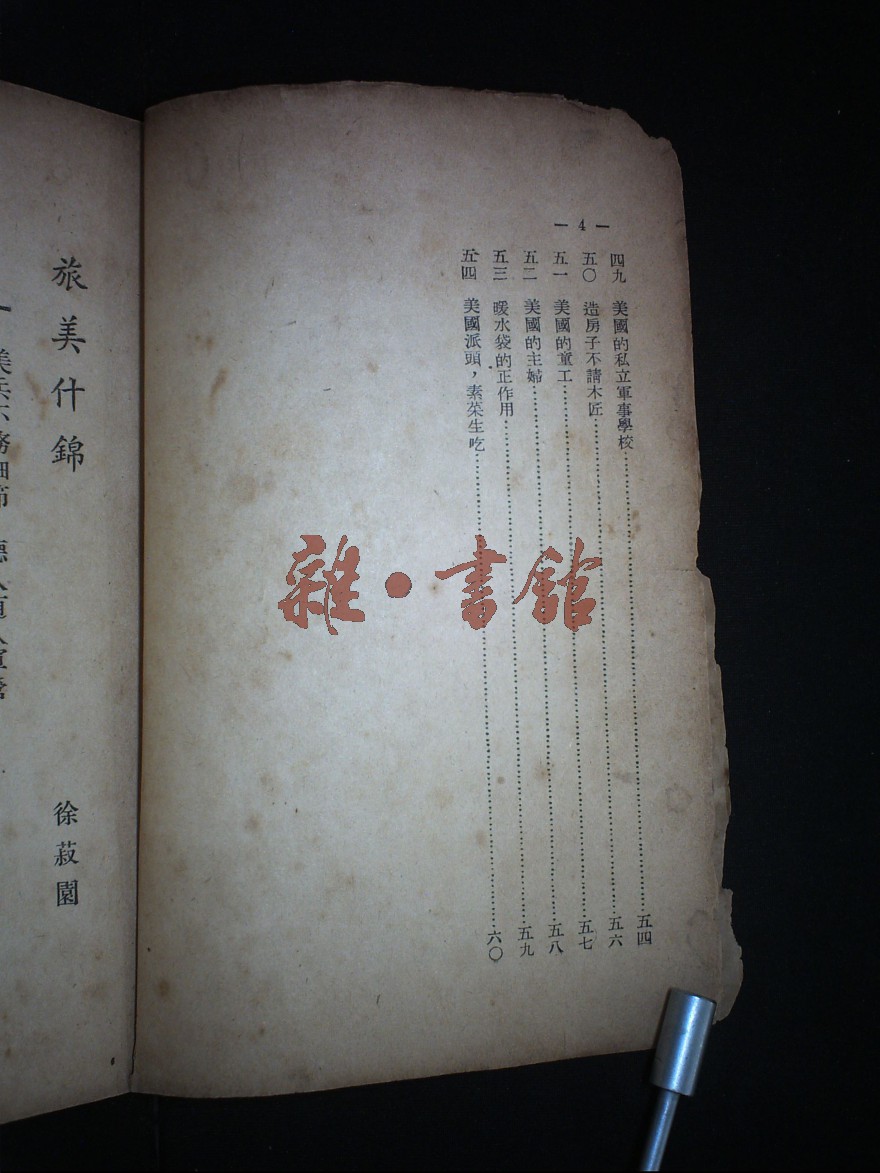 — 4 —
四九 美國的私立軍事學校……五四
五〇 造房子不請木匠……五六
五一 美國的童工……五七
五二 美國的主婦……五八
五三 暖水袋的正作用……五九
五四 美國派頭，素菜生吃……六〇
雜·書館
旅美什錦 徐菽園
一 美兵不務細節